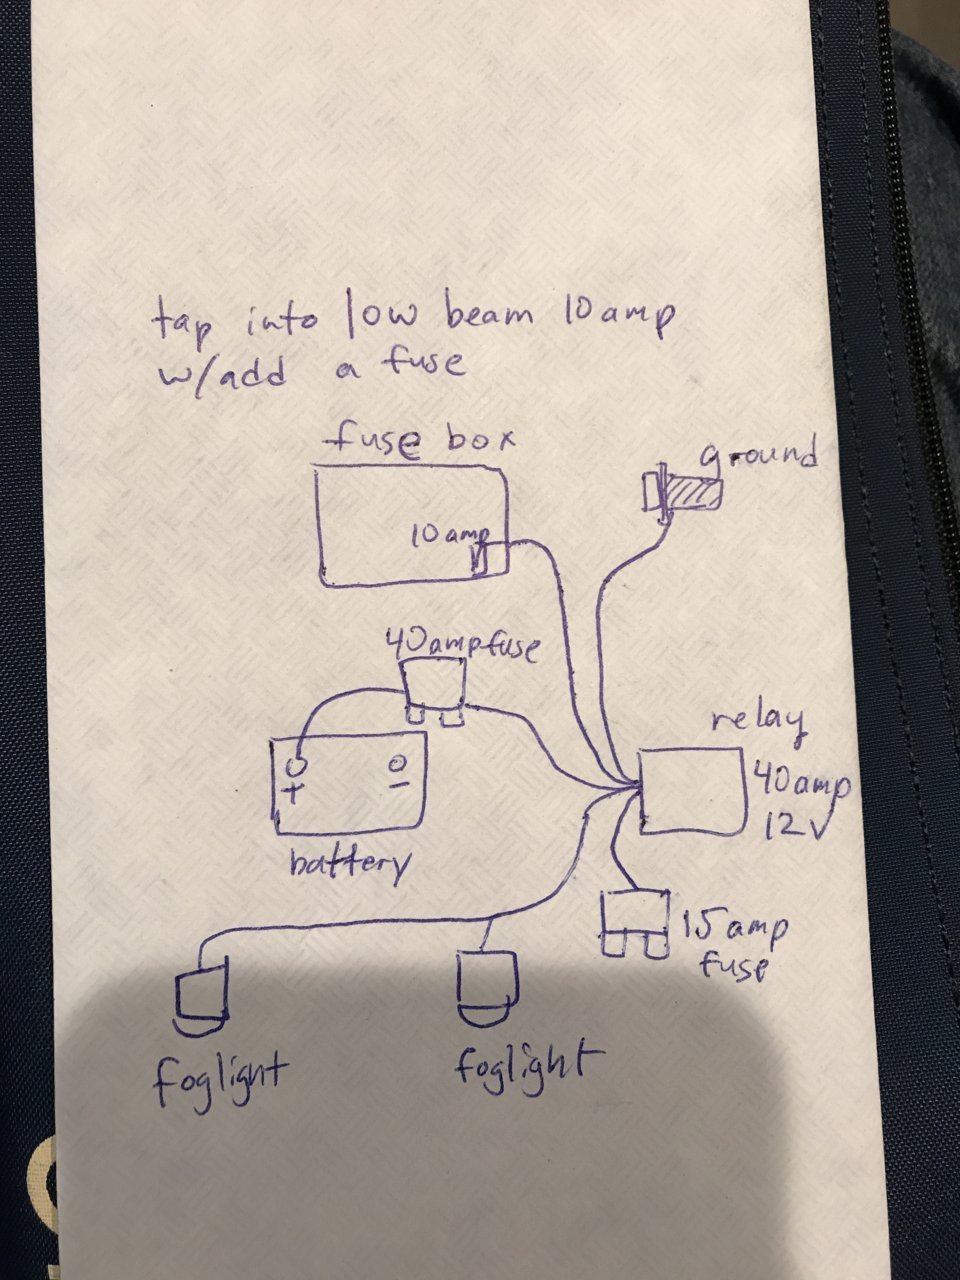 tap into low beam 10 amp
w/add a fuse
fuse box
ground
10 amp
40 amp fuse
relay
40 amp
12v
+
-
battery
15 amp
fuse
foglight
foglight